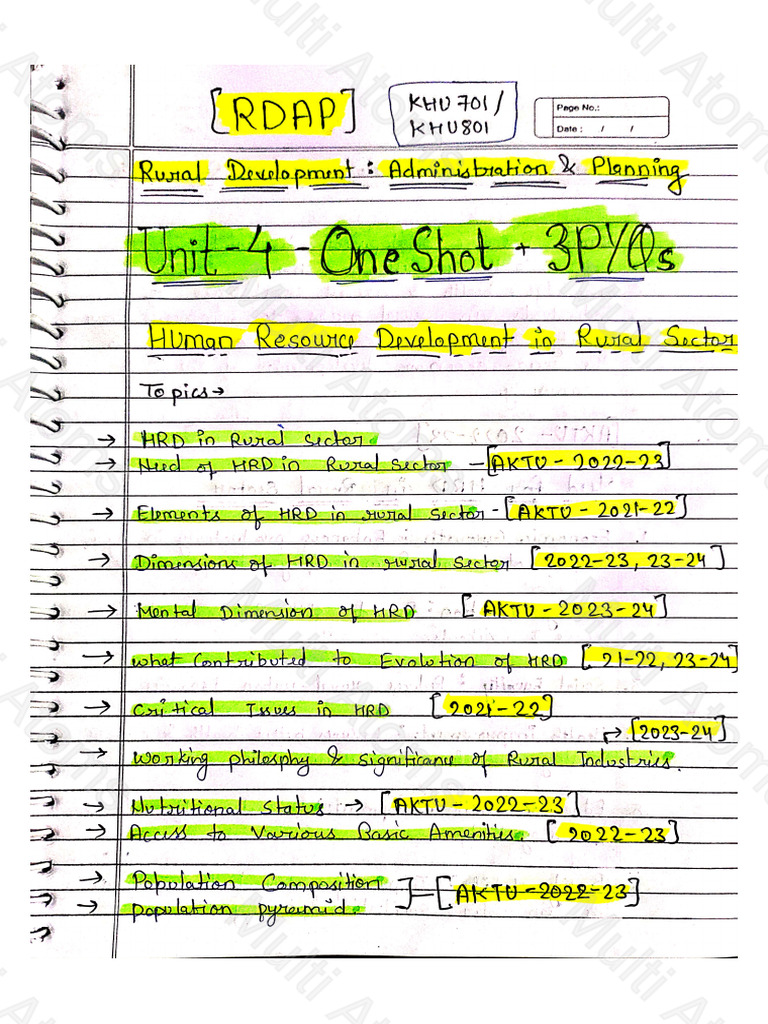 [RDAP]
KHU701/
KHU801
Page No.:
Date: / /
Rural Development: Administration & Planning
Unit-4 - One Shot + 3PYQs
Human Resource Development in Rural Sector
Topics→
→ HRD in Rural Sector
→ Need of HRD in Rural Sector - [AKTU - 2022-23]
→ Elements of HRD in rural sector - [AKTU - 2021-22]
→ Dimensions of HRD in rural sector [2022-23, 23-24]
→ Mental Dimension of HRD [AKTU - 2023-24]
→ what Contributed to Evolution of HRD [21-22, 23-24]
→ Critical Issues in HRD [2021-22]
→ [2023-24]
→ working philosphy & significance of Rural Industries.
→ Nutritional Status → [AKTU - 2022-23]
→ Access to Various Basic Amenities. [2022-23]
→ Population Composition
→ population pyramid. ]-[AKTU-2022-23]
Multi Atoms